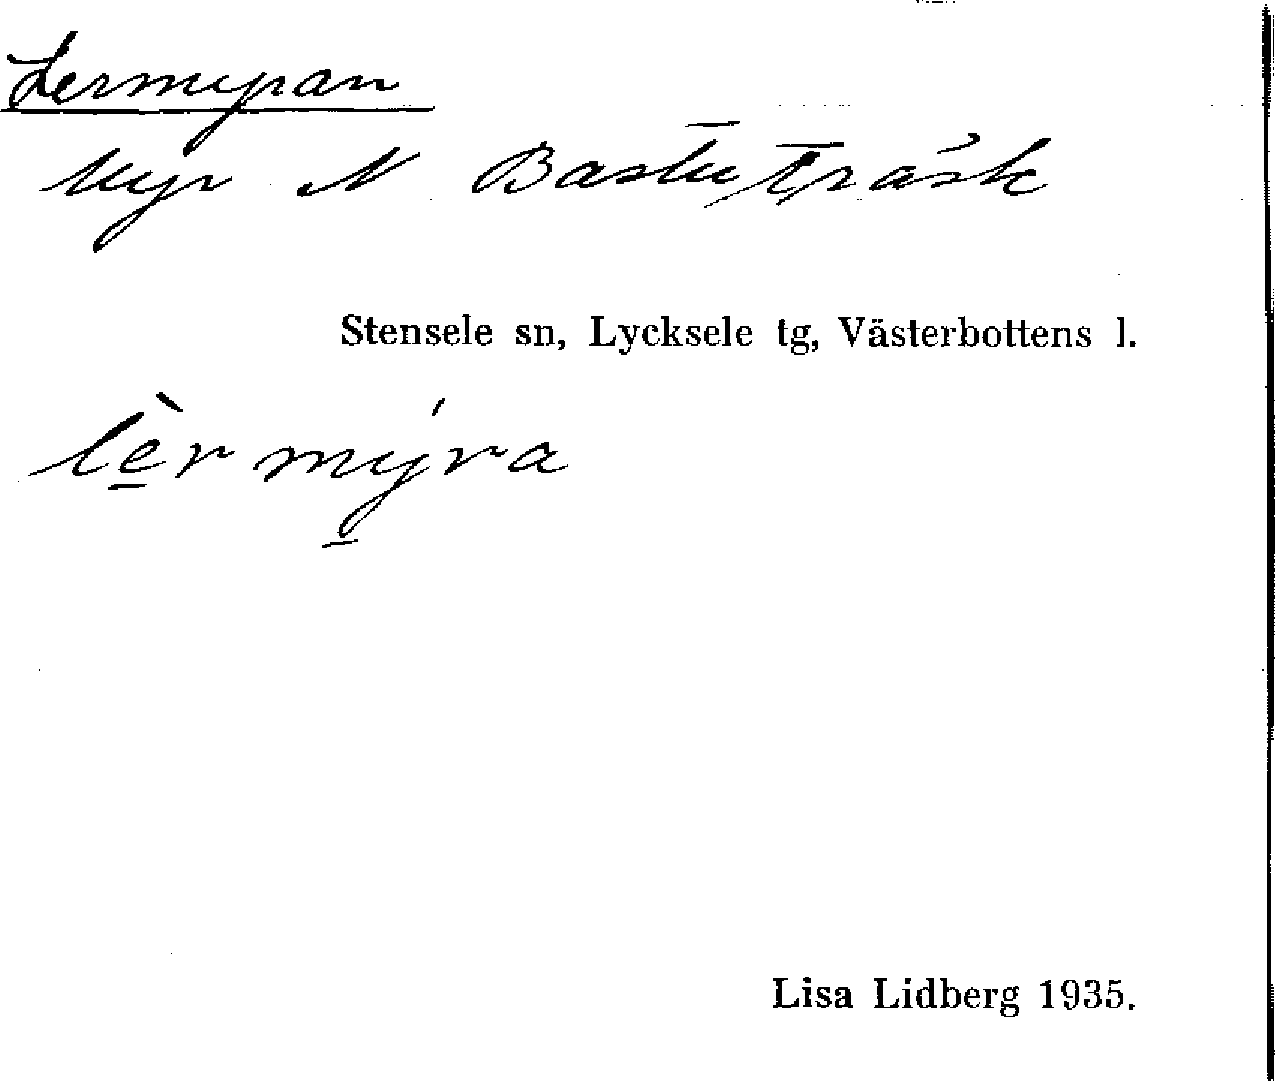 Lermyran
Myr N Bastuträsk
Stensele sn, Lycksele tg, Västerbottens l.
lè̱rmý̱ra
Lisa Lidberg 1935.